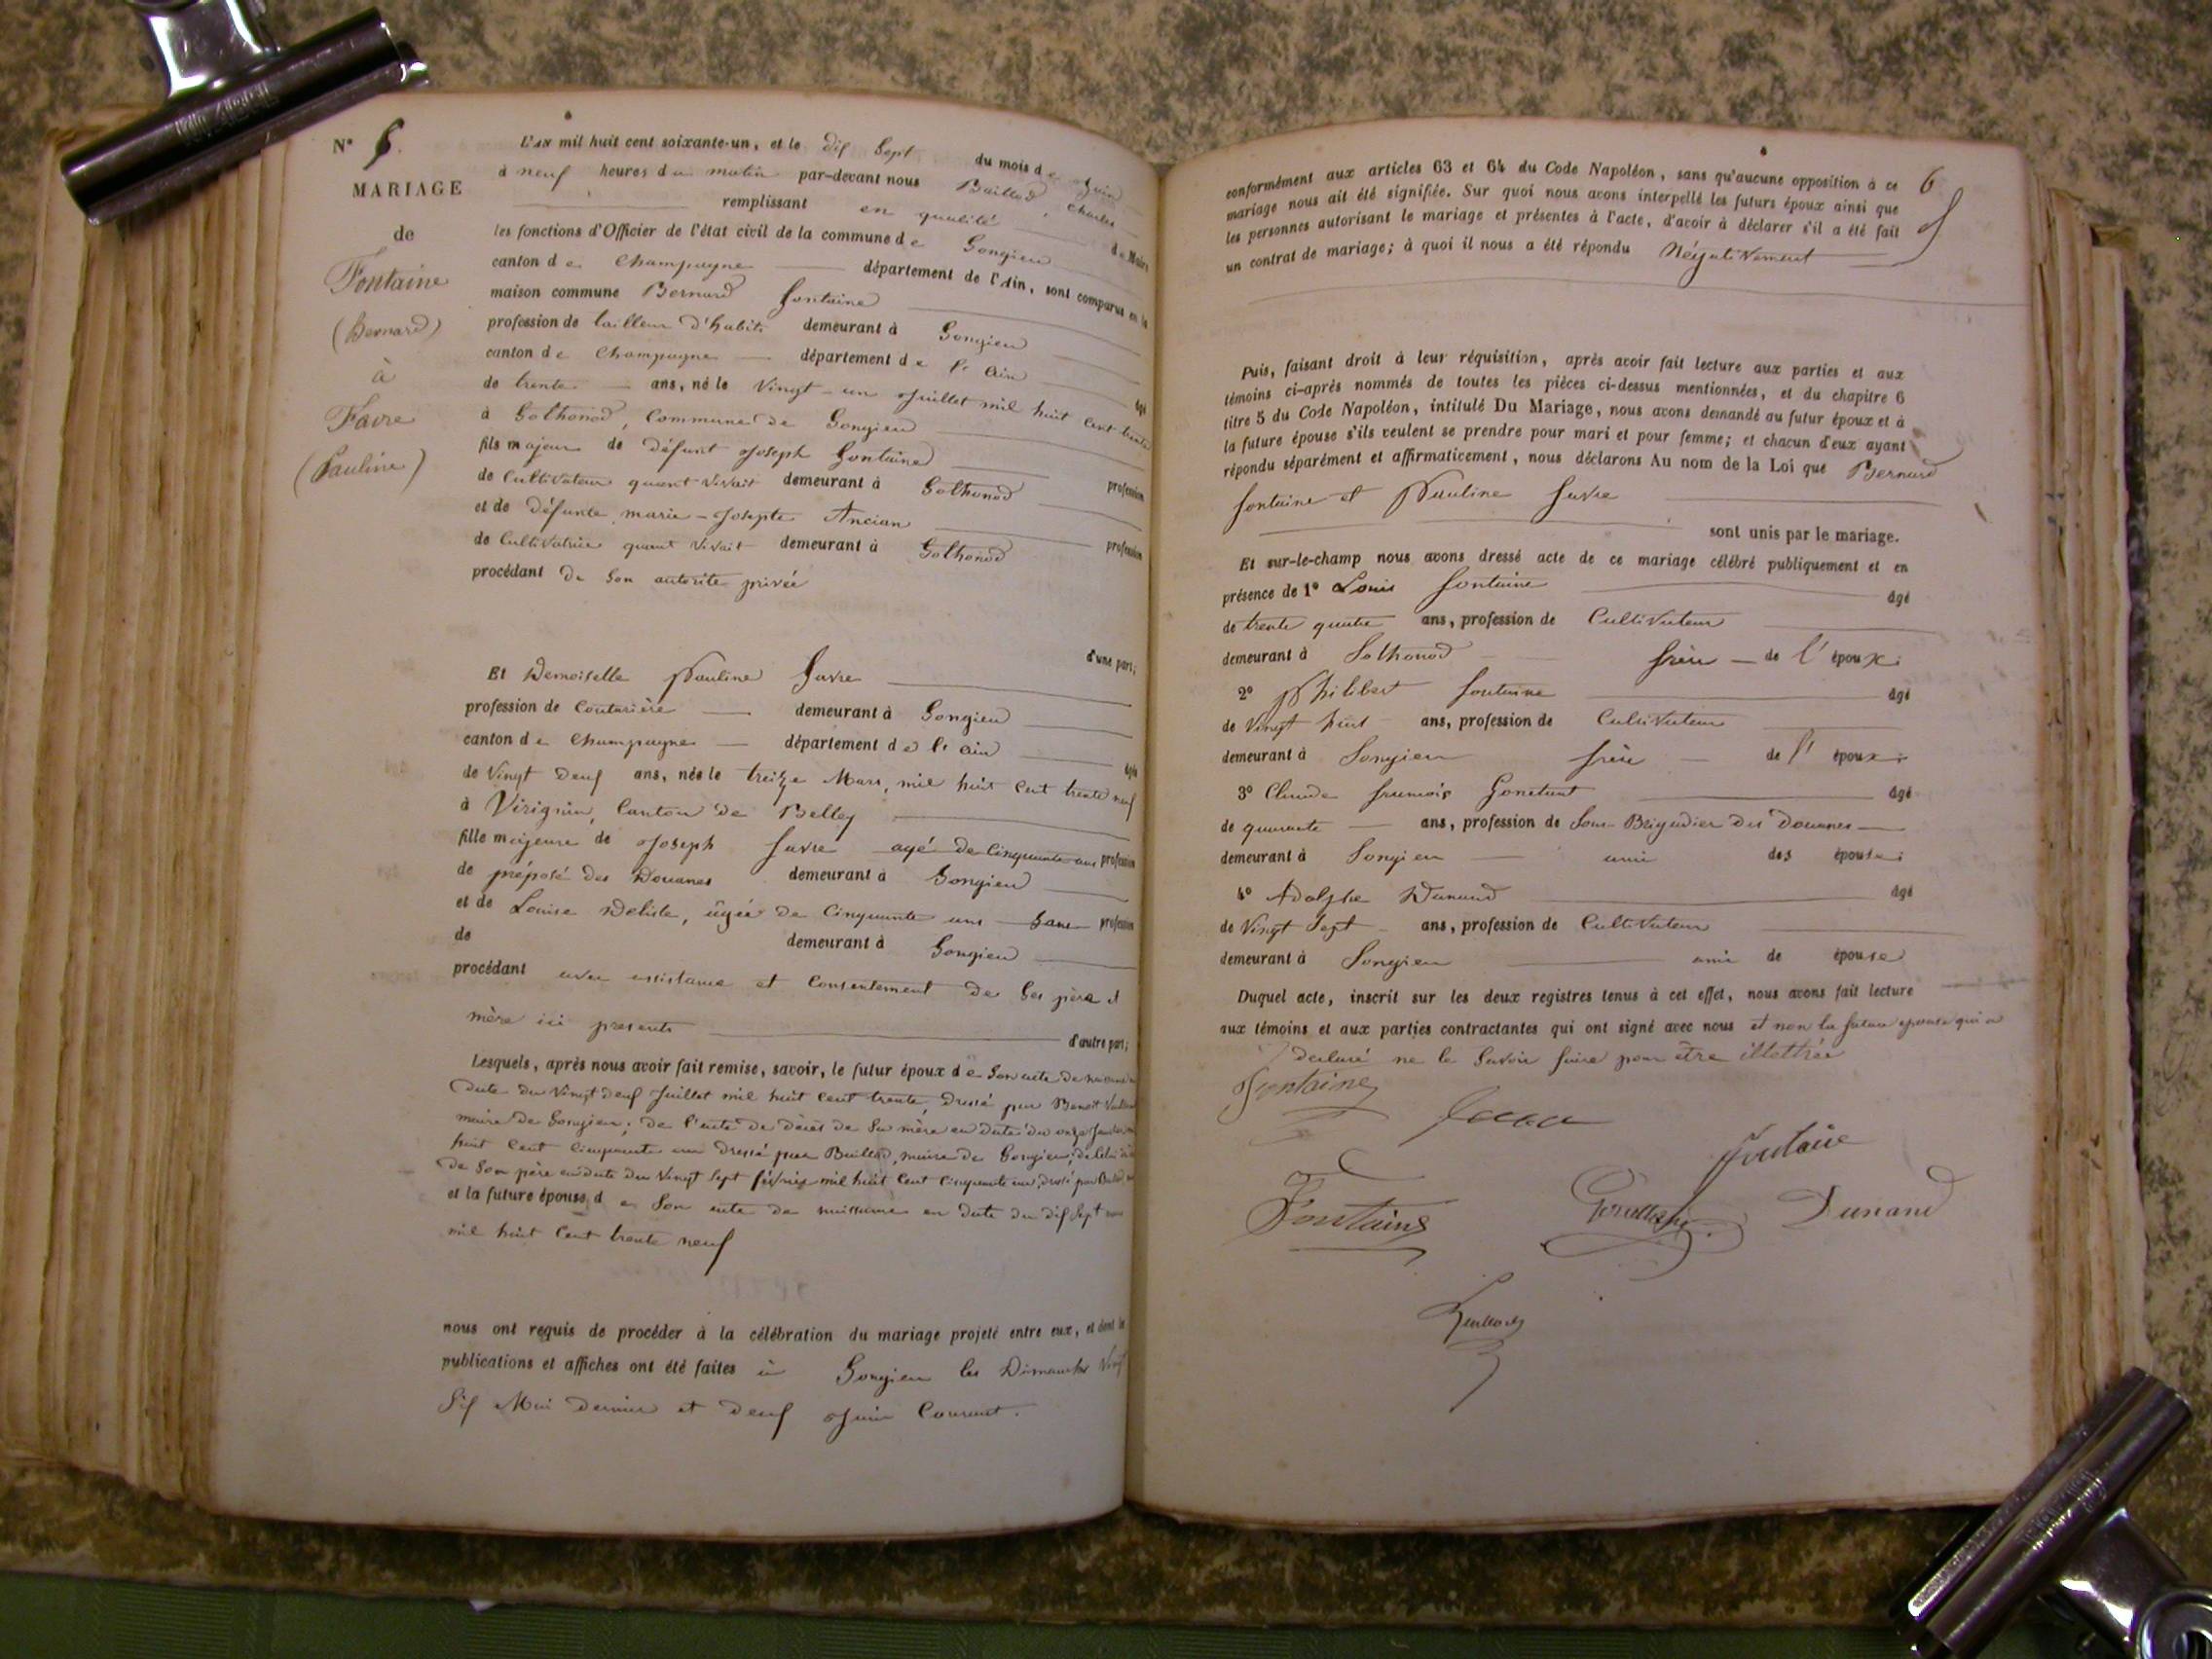 N°
MARIAGE
de
Fontaine
(Bernard)
à
Favre
(Pauline)
L'AN mil huit cent soixante-un, et le dix Sept du mois de Juin
à neuf heures du matin par-devant nous Baillod, Charles
remplissant en qualité de Maire
les fonctions d'Officier de l'état civil de la commune de Songieu
canton de Champagne département de l'Ain, sont comparus en la
maison commune Bernard fontaine
profession de tailleur d'habits demeurant à Songieu
canton de Champagne département de l'Ain âgé
de trente ans, né le Vingt-un Juillet mil huit Cent trente
à Sothonod, Commune de Songieu
fils majeur de défunt Joseph fontaine profession
de Cultivateur quant vivait demeurant à Sothonod
et de défunte marie-Josephte Ancian profession
de Cultivatrice quant vivait demeurant à Sothonod
procédant de Son autorité privée
d'une part;
Et Demoiselle Pauline favre
profession de Couturière demeurant à Songieu
canton de Champagne département de l'Ain âgée
de Vingt deux ans, née le treize Mars, mil huit Cent trente neuf
à Virignin, Canton de Belley
fille majeure de Joseph favre agé de Cinquante ans profession
de préposé des Douanes demeurant à Songieu
et de Louise Delisle, âgée de Cinquante ans Sans profession
de demeurant à Songieu
procédant avec assistance et Consentement de Ses père et
mère ici presents d'autre part;
Lesquels, après nous avoir fait remise, savoir, le futur époux de Son acte de naissance en
date du Vingt deux Juillet mil huit Cent trente, dressé par Benoit
maire de Songieu; de l'acte de décès de Sa mère en date du onze
huit Cent Cinquante un dressé par Baillod, maire de Songieu; de Celui
de Son père en date du Vingt Sept février mil huit Cent Cinquante un, dressé par Baillod
et la future épouse de Son acte de naissance en date du dix Sept mars
mil huit Cent trente neuf
nous ont requis de procéder à la célébration du mariage projeté entre eux, et dont les
publications et affiches ont été faites à Songieu les Dimanches Vingt
Six Mai dernier et deux Juin Courant.
6
conformément aux articles 63 et 64 du Code Napoléon, sans qu'aucune opposition à ce
mariage nous ait été signifiée. Sur quoi nous avons interpellé les futurs époux ainsi que
les personnes autorisant le mariage et présentes à l'acte, d'avoir à déclarer s'il a été fait
un contrat de mariage; à quoi il nous a été répondu Négativement
Puis, faisant droit à leur réquisition, après avoir fait lecture aux parties et aux
témoins ci-après nommés de toutes les pièces ci-dessus mentionnées, et du chapitre 6
titre 5 du Code Napoléon, intitulé Du Mariage, nous avons demandé au futur époux et à
la future épouse s'ils veulent se prendre pour mari et pour femme; et chacun d'eux ayant
répondu séparément et affirmativement, nous déclarons Au nom de la Loi que Bernard
fontaine et Pauline favre
sont unis par le mariage.
Et sur-le-champ nous avons dressé acte de ce mariage célébré publiquement et en
présence de 1° Louis fontaine âgé
de trente quatre ans, profession de Cultivateur
demeurant à Sothonod frère de l'époux;
2° Philibert fontaine âgé
de Vingt huit ans, profession de Cultivateur
demeurant à Songieu frère de l'époux;
3° Claude francois Gonettant âgé
de quarante ans, profession de Sous-Brigadier des Douanes
demeurant à Songieu ami des époux;
4° Adolphe Dunand âgé
de Vingt Sept ans, profession de Cultivateur
demeurant à Songieu ami de épouse
Duquel acte, inscrit sur les deux registres tenus à cet effet, nous avons fait lecture
aux témoins et aux parties contractantes qui ont signé avec nous et non la future épouse qui a
déclaré ne le Savoir faire pour être illettrée
Fontaine
Fontaine
Fontaine
Dunand
Baillod